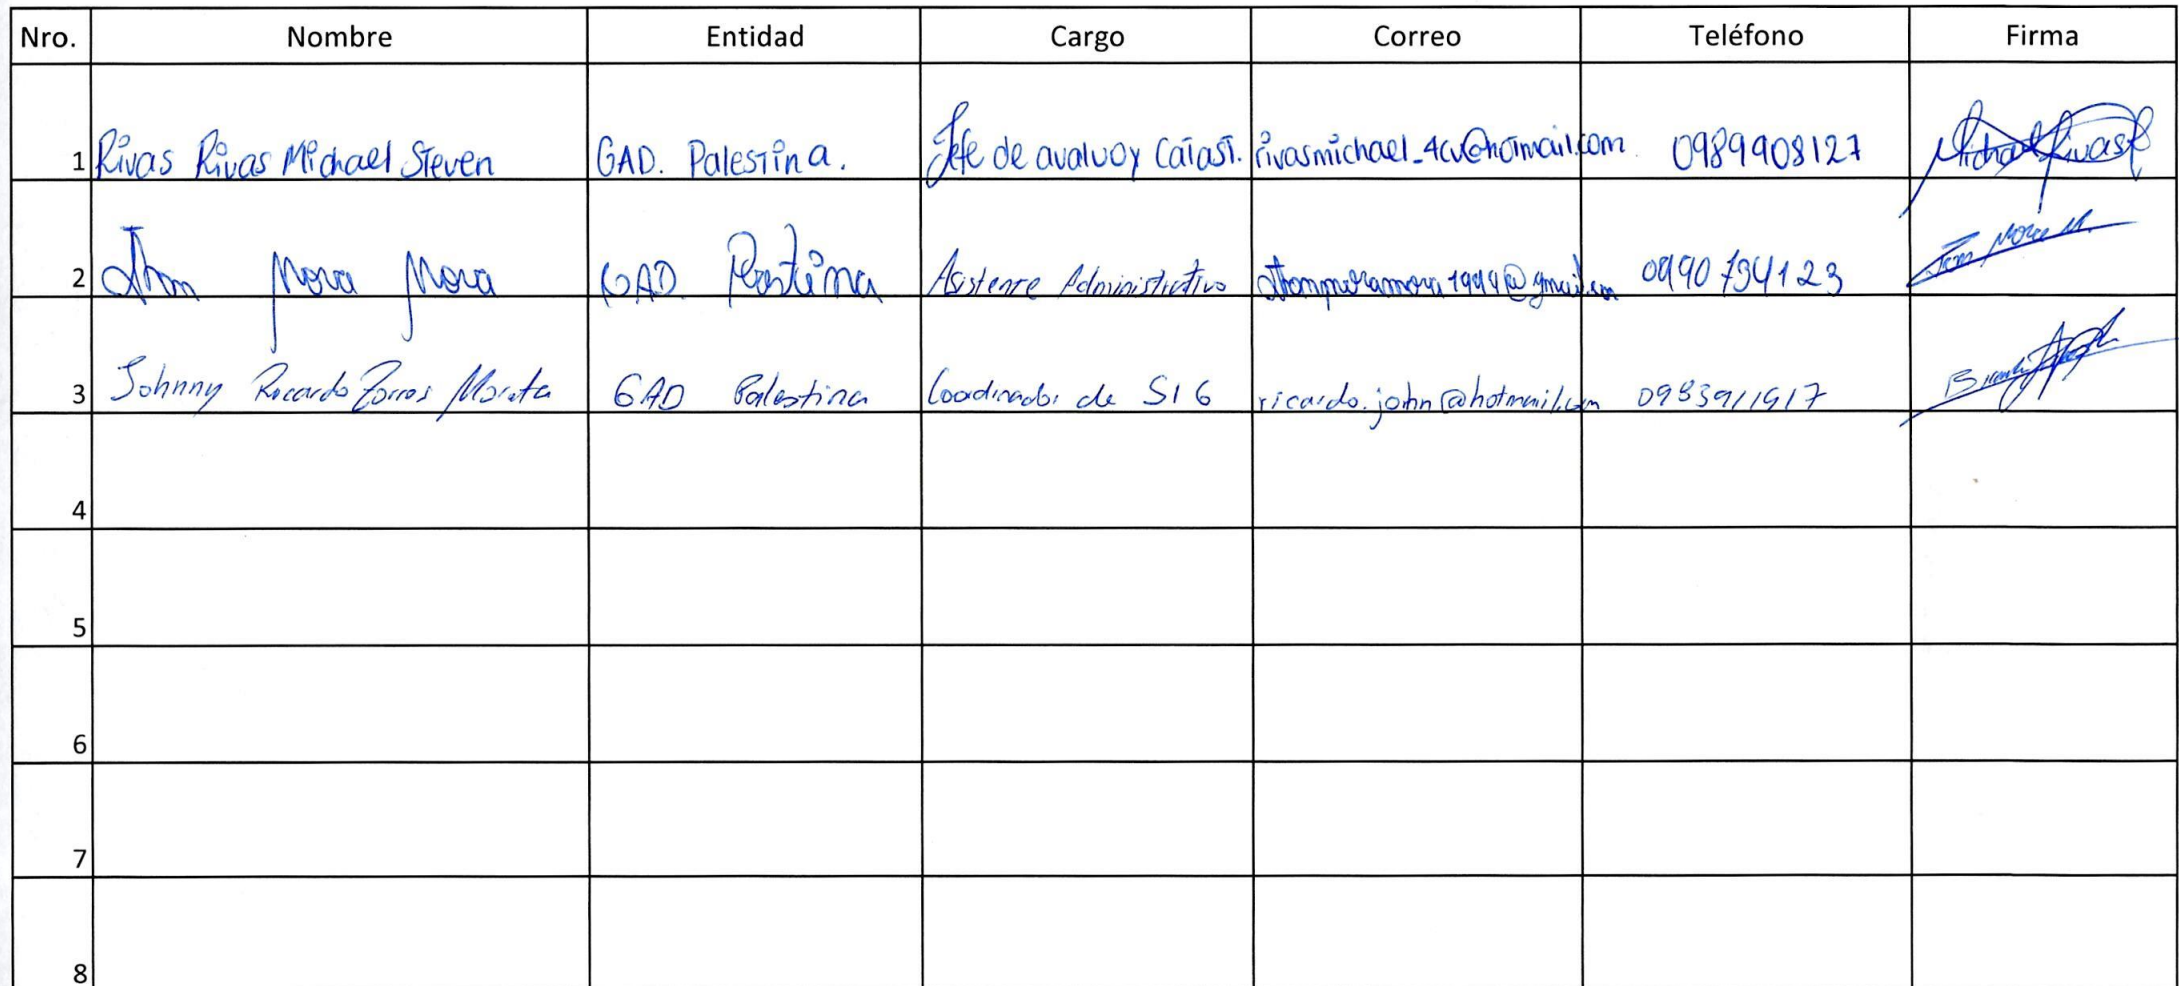 Nro. Nombre Entidad Cargo Correo Teléfono Firma
1 Rivas Rivas Michael Steven GAD. Palestina. Jefe de avaluo y Catast. rivasmichael_4cv@hotmail.com 0989908127 Michael Rivas R
2 Mora Mora GAD Palestina Asistente Administrativo 0990794123
3 Johnny Ricardo Morata GAD Palestina Coordinador de SIG ricardo.john@hotmail.com
4
5
6
7
8